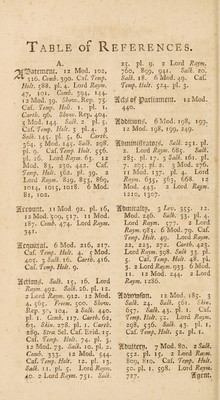 TABLE of REFERENCES.
A.
ABatement. 12 Mod. 102,
316. Comb. 390. Cas. Temp.
Holt, 588. pl. 4. Lord Raym.
47, 101. Comb. 394, 144.
12 Mod. 39. Show. Rep. 75.
Cas. Temp. Holt. 1. pl. 1.
Carth. 96. Show. Rep. 404.
5 Mod. 144. Salk. 2. pl. 5.
Cas. Temp. Holt. 3. pl. 4. 3
Salk. 145. pl. 6. Carth.
364. 5 Mod. 145. Salk. 298.
pl. 9. Cas. Temp. Holt. 356.
pl. 16. Lord Raym. 63. 12
Mod. 83, 230, 442. Cas.
Temp. Holt. 562. pl. 39. 2
Lord Raym. 849, 853, 869,
1014, 1015, 1018. 6 Mod.
81, 102.
Account. 11 Mod. 92. pl. 16,
12 Mod. 509, 517. 11 Mod.
187. Comb. 474. Lord Raym.
341.
Acquittal. 6 Mod. 216, 217.
Cas. Temp. Holt. 4. 5 Mod.
405. 5 Salk. 16. Carth. 416.
Cas. Temp. Holt. 9.
Actions. Salk. 15, 16. Lord
Raym. 492. Salk. 16. pl. 12.
2 Lord Raym. 912. 12 Mod.
4, 565. Freem. 500. Show.
Rep. 50, 104. 2 Salk. 440.
pl. 1. Comb. 117. Carth. 62,
63. Skin. 278. pl. 1. Carth.
289. Ibid. Sel. Cas. Evid. 17.
Cas. Temp. Holt. 74. pl. 3.
12 Mod. 73. Salk. 10. pl. 2.
Comb. 333. 12 Mod. 544.
Cas. Temp. Holt. 12. pl. 13.
Salk. 11. pl. 5. Lord Raym.
40. 2 Lord Raym. 751. Salk.
23. pl. 9. 2 Lord Raym.
760, 899, 941. Salk. 20.
Salk. 18. 6 Mod. 49. Cas.
Temp. Holt. 524. pl. 3.
Acts of Parliament. 12 Mod.
440.
Additions. 6 Mod. 198, 199.
12 Mod. 198, 199, 249.
Administrators. Salk. 251. pl.
Lord Raym. 685. Salk.
285. pl. 17. 3 Salk. 161. pl.
7. 293. pl. 8. 3 Mod. 276.
11 Mod. 137. pl. 4. Lord
Raym. 655, 363, 668. 12
Mod. 443. 2 Lord Raym.
1210, 1307.
Admiralty. 3 Lev. 355. 12
Mod. 246. Salk. 33. pl. 4.
Lord Raym. 577. 2 Lord
Raym. 983. 6 Mod. 79. Cas.
Temp. Holt. 49. Lord Raym.
22, 223, 272. Carth. 423.
Lord Raym. 398. Salk 33. pl.
5. Cas. Temp. Holt. 48. pl.
3. 2 Lord Raym. 933. 6 Mod.
11. 12 Mod. 244. Lord
Raym. 1286.
Advowson. 12 Mod. 183. 5
Salk. 24. Salk. 561. Skin.
657. Salk. 43. pl. 1. Cas.
Temp. Holt. 52. Lord Raym.
298, 536. Salk. 43. pl. 1.
Cas. Temp. Holt. 52. pl. 1.
Adultery. 7 Mod. 80. 2 Salk.
552. pl. 15. 2 Lord Raym.
809, 810. Cas. Temp. Holt.
50. pl. 1. 598. Lord Raym.
727.
Agent.